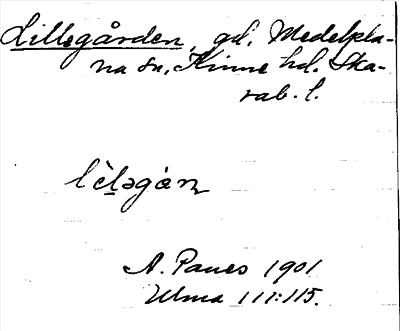 Lillegården, gd, Medelpla-
na sn, Kinne hd. Ska-
rab. l.
A. Paues 1901
Ulma 111:115.